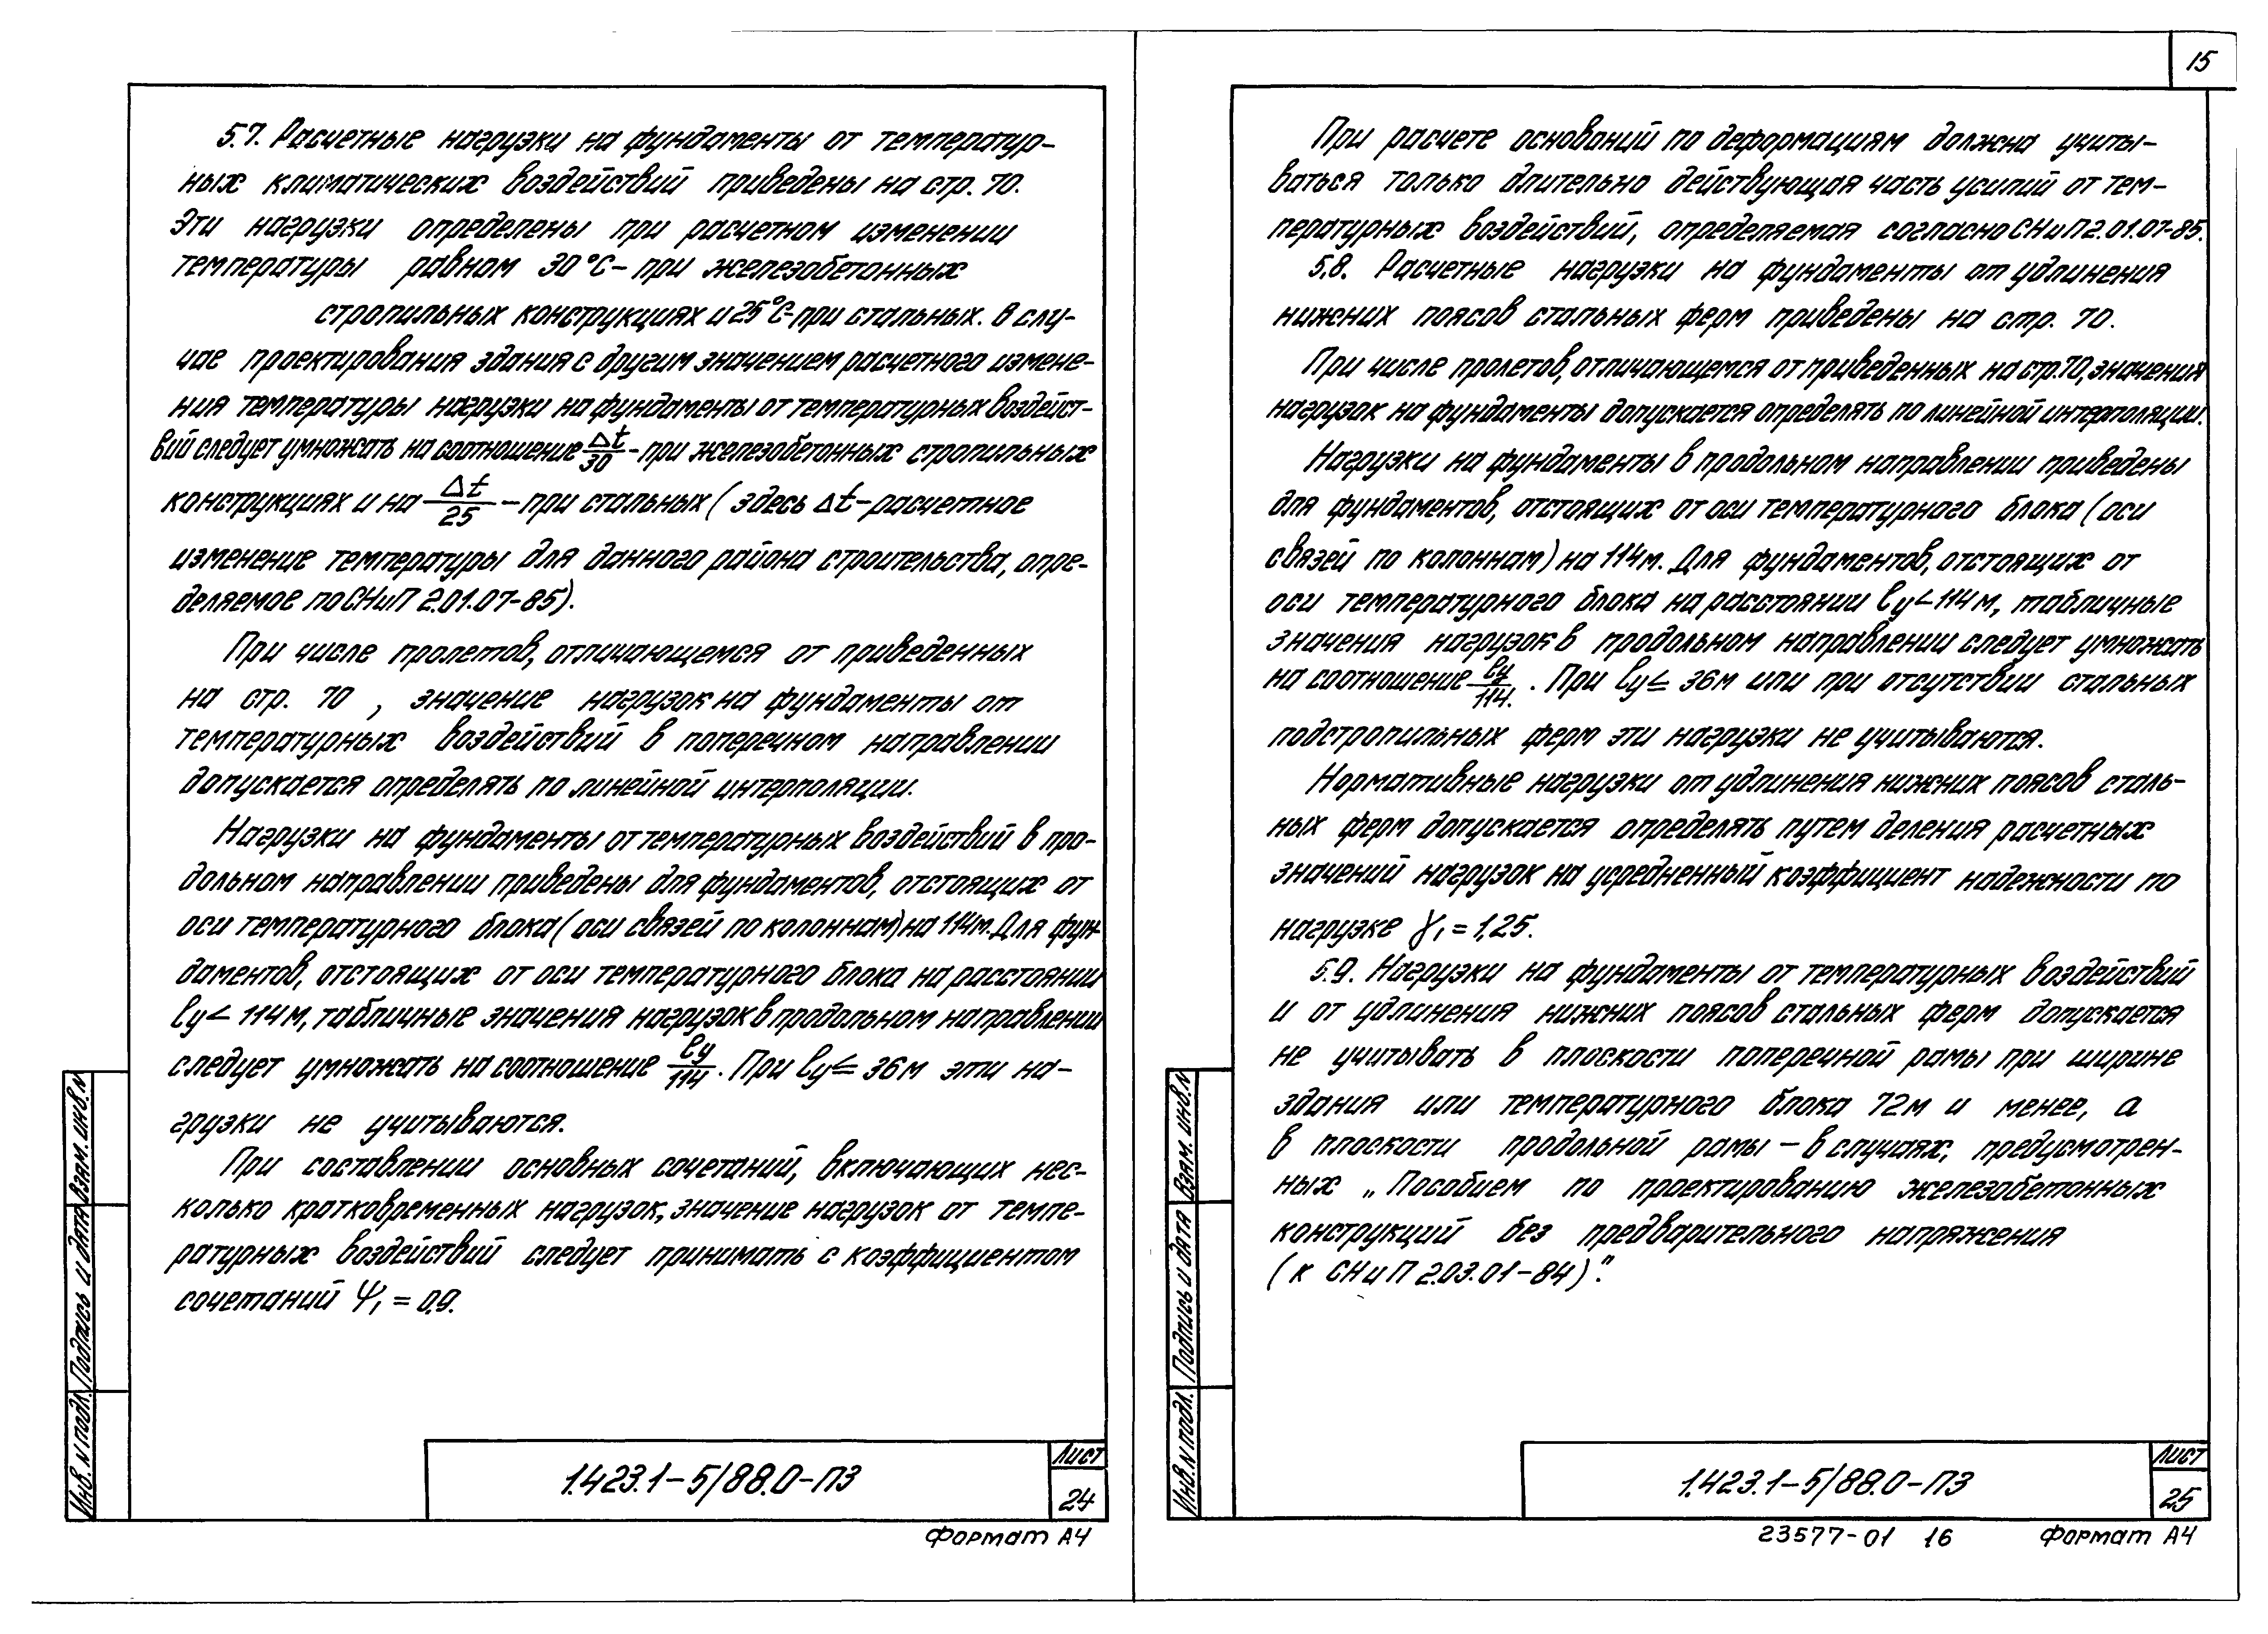 5.7. Расчетные нагрузки на фундаменты от температур-
ных климатических воздействий приведены на стр. 70.
Эти нагрузки определены при расчетном изменении
температуры равном 30°С - при железобетонных
стропильных конструкциях и 25°С - при стальных. В слу-
чае проектирования здания с другим значением расчетного измене-
ния температуры нагрузки на фундаменты от температурных воздейст-
вий следует умножать на соотношение Δt/30 - при железобетонных стропильных
конструкциях и на Δt/25 - при стальных (здесь Δt - расчетное
изменение температуры для данного района строительства, опре-
деляемое по СНиП 2.01.07-85).
При числе пролетов, отличающемся от приведенных
на стр. 70 , значение нагрузок на фундаменты от
температурных воздействий в поперечном направлении
допускается определять по линейной интерполяции.
Нагрузки на фундаменты от температурных воздействий в про-
дольном направлении приведены для фундаментов, отстоящих от
оси температурного блока (оси связей по колоннам) на 114 м. Для фун-
даментов, отстоящих от оси температурного блока на расстоянии
ly < 114 м, табличные значения нагрузок в продольном направлении
следует умножать на соотношение ly/114 . При ly ≤ 36 м эти на-
грузки не учитываются.
При составлении основных сочетаний, включающих нес-
колько кратковременных нагрузок, значение нагрузок от темпе-
ратурных воздействий следует принимать с коэффициентом
сочетаний Ψ1 = 0,9.
Взам. инв. N
Подпись и дата
Инв. N подл.
1.423.1-5/88.0-ПЗ
Лист
24
Формат А4
15
При расчете оснований по деформациям должна учиты-
ваться только длительно действующая часть усилий от тем-
пературных воздействий, определяемая согласно СНиП 2.01.07-85.
5.8. Расчетные нагрузки на фундаменты от удлинения
нижних поясов стальных ферм приведены на стр. 70.
При числе пролетов, отличающемся от приведенных на стр. 70, значения
нагрузок на фундаменты допускается определять по линейной интерполяции.
Нагрузки на фундаменты в продольном направлении приведены
для фундаментов, отстоящих от оси температурного блока (оси
связей по колоннам) на 114 м. Для фундаментов, отстоящих от
оси температурного блока на расстоянии ly < 114 м, табличные
значения нагрузок в продольном направлении следует умножать
на соотношение ly/114. . При ly ≤ 36 м или при отсутствии стальных
подстропильных ферм эти нагрузки не учитываются.
Нормативные нагрузки от удлинения нижних поясов сталь-
ных ферм допускается определять путем деления расчетных
значений нагрузок на усредненный коэффициент надежности по
нагрузке γ1 = 1,25.
5.9. Нагрузки на фундаменты от температурных воздействий
и от удлинения нижних поясов стальных ферм допускается
не учитывать в плоскости поперечной рамы при ширине
здания или температурного блока 72 м и менее, а
в плоскости продольной рамы - в случаях, предусмотрен-
ных „Пособием по проектированию железобетонных
конструкций без предварительного напряжения
(к СНиП 2.03.01-84)".
Взам. инв. N
Подпись и дата
Инв. N подл.
1.423.1-5/88.0-ПЗ
Лист
25
23577-01 16
Формат А4